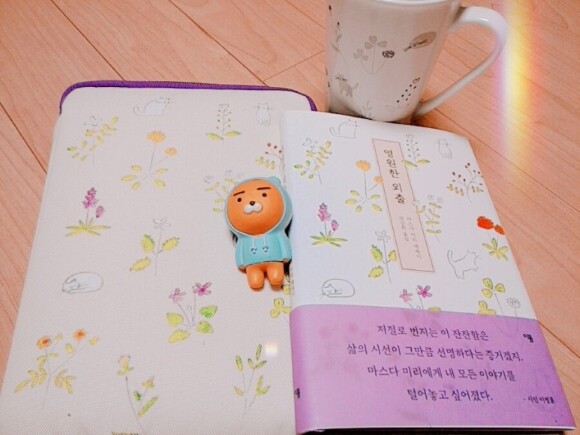 영원한 외출
저절로 번지는 이 잔잔함은
삶의 시선이 그만큼 선명하다는 증거겠지.
마스다 미리에게 내 모든 이야기를
털어놓고 싶어졌다.
이봄